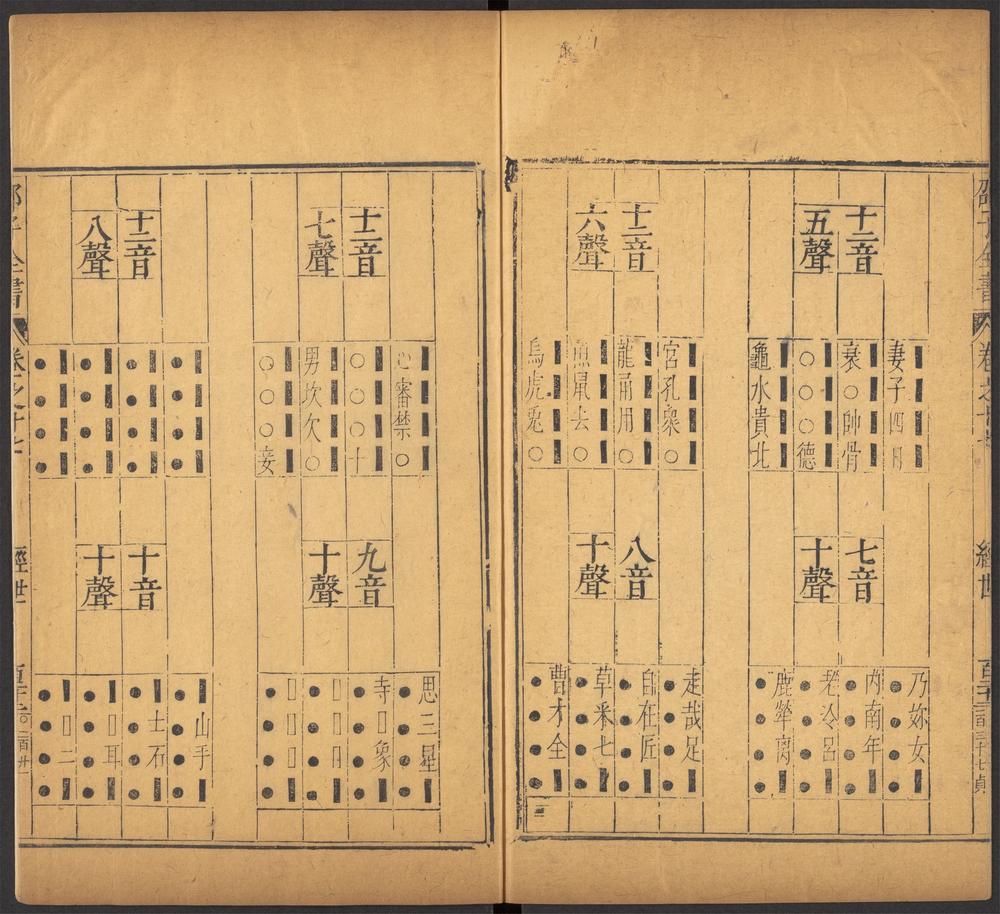 邵子全書
卷之十七
經世
十二音
五聲
妻子四日
衰○帥骨
○○○德
龜水貴北
七音
十聲
乃妳女■
內南年■
老冷呂■
鹿犖离■
十二音
六聲
宮孔衆○
龍甬用○
魚鼠去○
烏虎兔○
八音
十聲
走哉足■
自在匠■
草采七■
曹才全■
十二音
七聲
心審禁○
○○○十
男坎欠○
○○○妾
九音
十聲
思三星■
寺□象■
□□□■
□□□■
十二音
八聲
●●●●
●●●●
●●●●
●●●●
十音
十聲
■山手■
■士石■
■□耳■
■□二■
邵子全書
卷之十七
經世